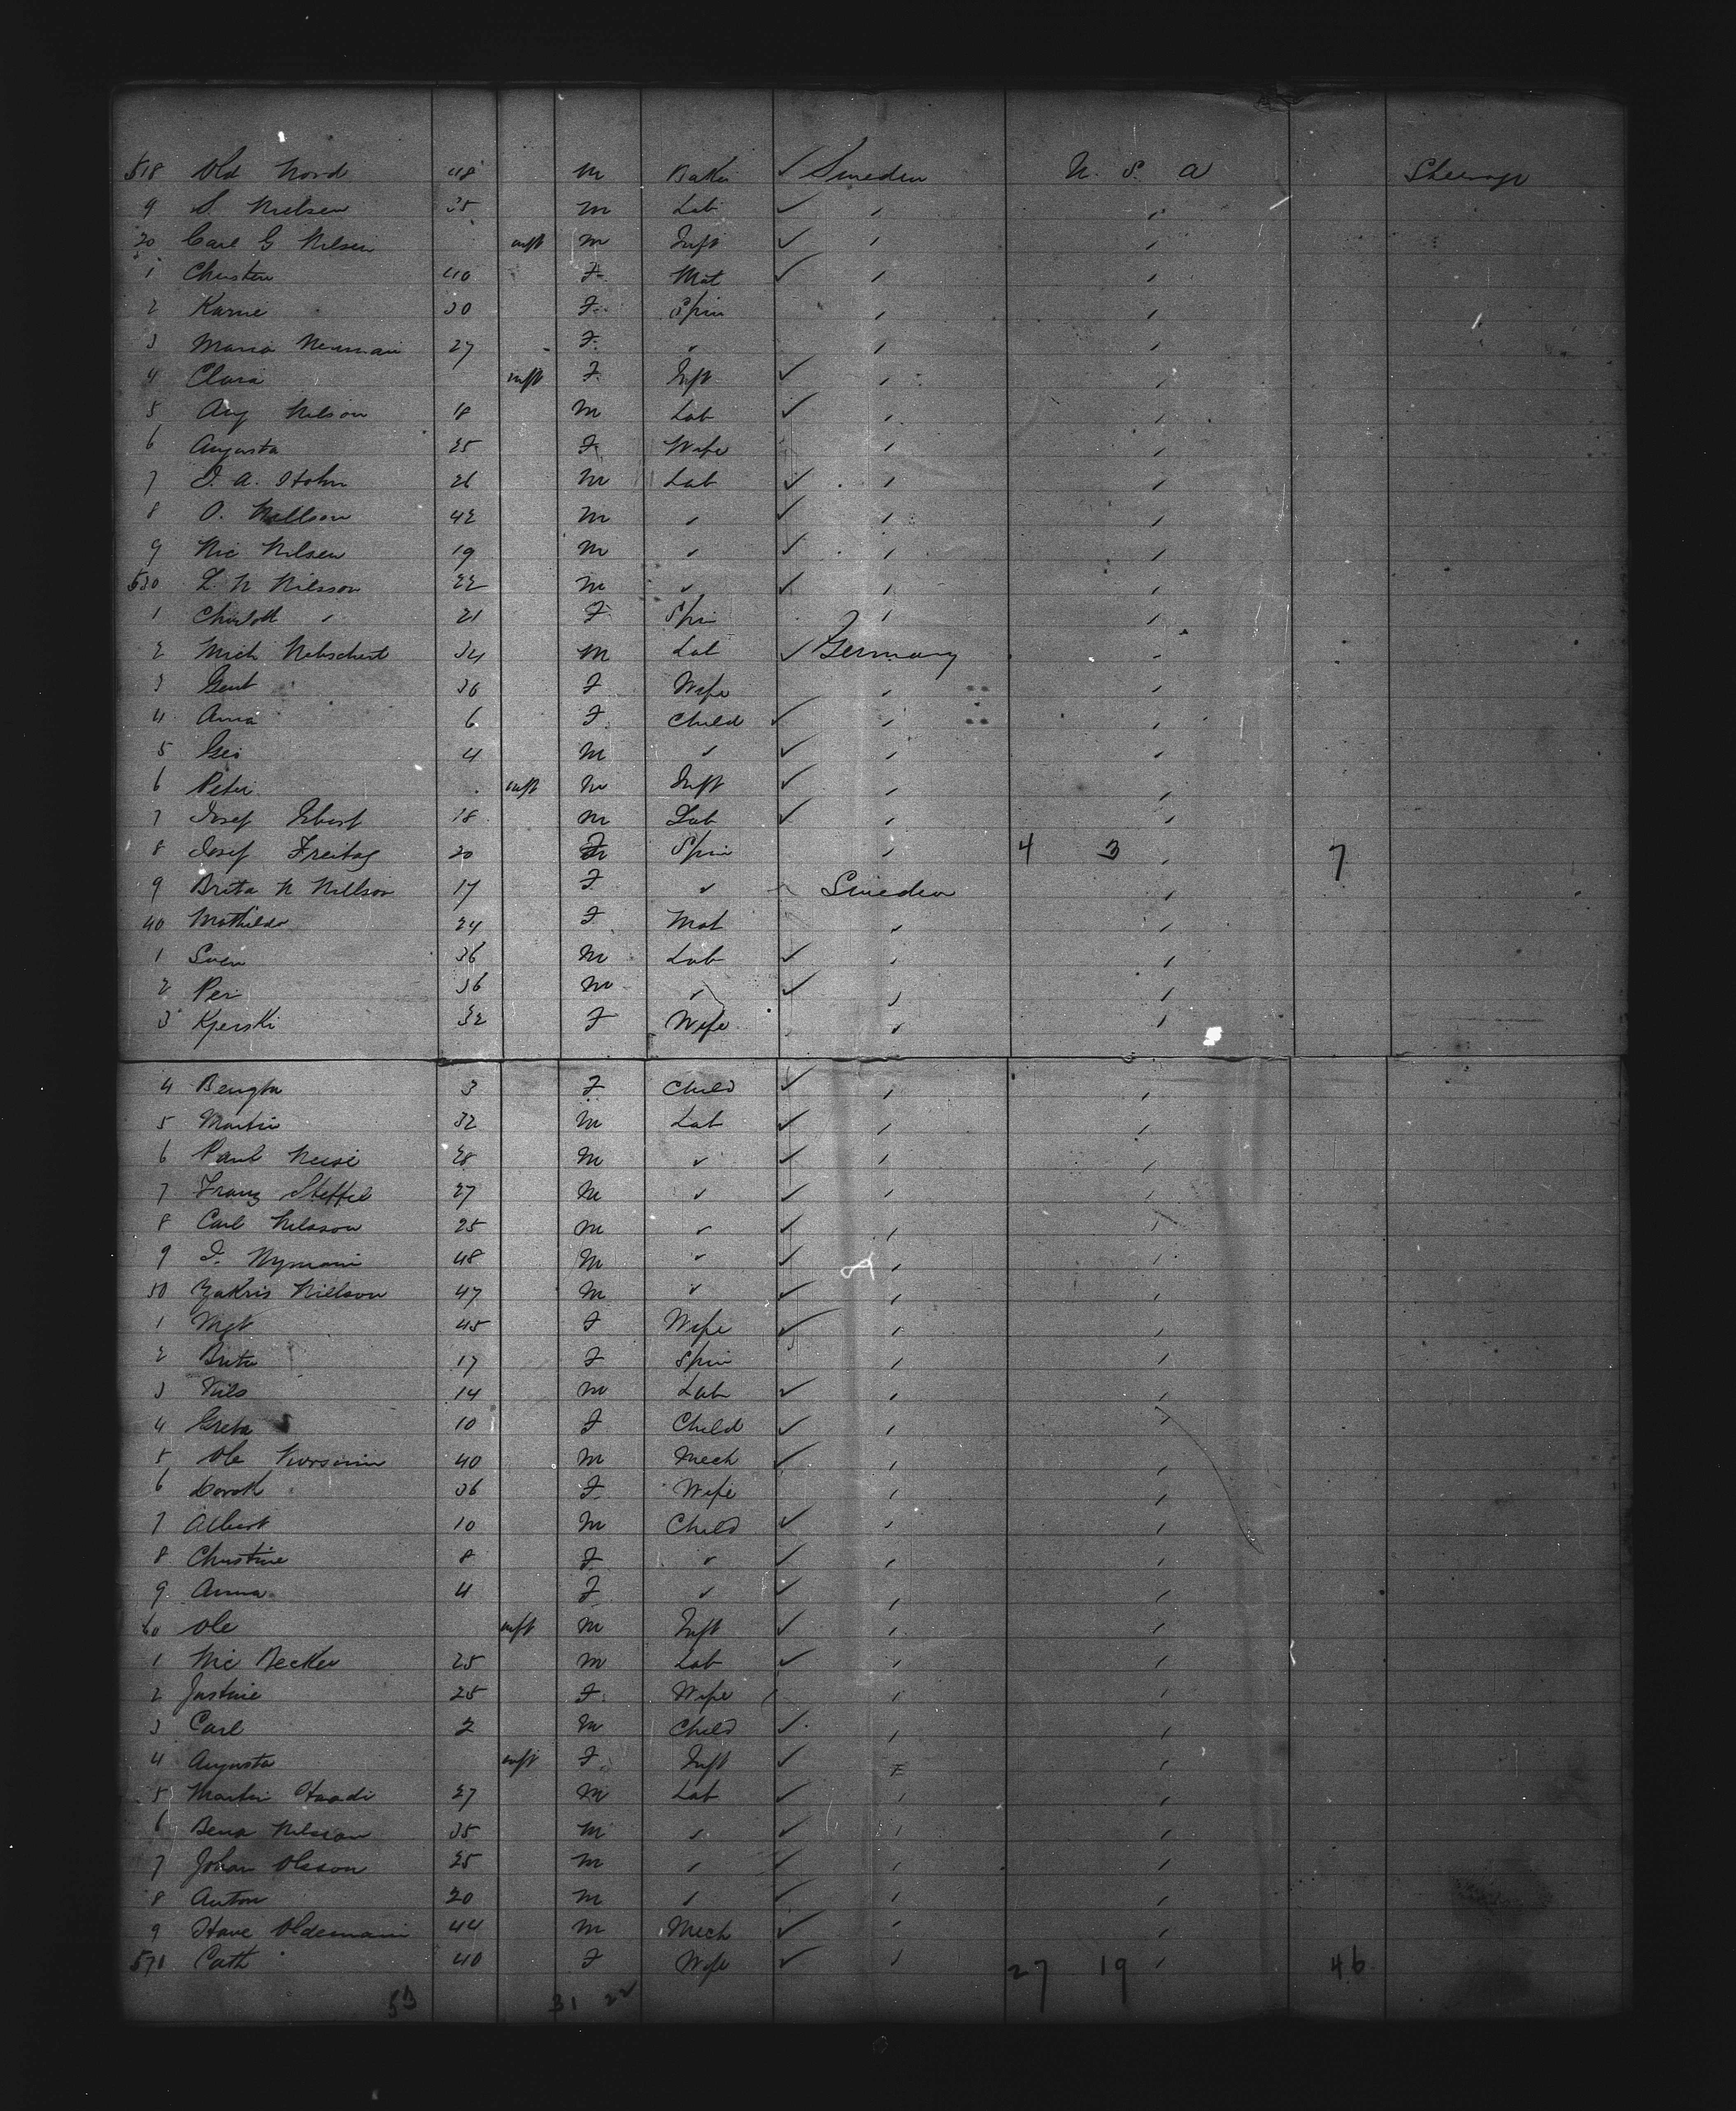 518 Old Nord 48 M Baker ✓ Sweden U. S. A Steerage
9 S. Nielsen 35 M Lab ✓ "
20 Carl G Nilsen inft M Inft ✓ " "
1 Christen 40 F Mat ✓ " "
2 Karne 30 F Spin " "
3 Maria Neuman 27 F " " "
4 Clara inft F Inft ✓ " "
5 Aug Nelson 18 M Lab ✓ " "
6 Augusta 25 F Wife " "
7 I. A. Hohn 26 M Lab ✓ " "
8 O. Nellson 42 M " ✓ " "
9 Nic Nilsen 19 M " ✓ " "
530 L. N Nilsson 22 M " ✓ " "
1 Charlott " 21 F Spin " "
2 Mich Nebschert 34 M Lab ✓ Germany "
3 Gent 36 F Wife " "
4 Anna 6 F Child ✓ " "
5 Geo 4 M " ✓ " "
6 Peter inft M Inft ✓ " "
7 Josef 18 M Lab ✓ " "
8 Josef Freitag 20 F Spin " 4 3 " 7
9 Brita N Nellson 17 F " Sweden "
40 Mathilda 24 F Mat " "
1 Sven 36 M Lab ✓ " "
2 Per 36 M " ✓ " "
3 Kjerski 32 F Wife " "
4 Bengta 3 F Child ✓ " "
5 Martin 32 M Lab ✓ " "
6 Paul 28 M " ✓ " "
7 Franz Steffel 27 M " ✓ " "
8 Carl Nelsson 25 M " ✓ " "
9 I. Nyman 48 M " ✓ " "
50 Zakris Nielson 47 M " ✓ " "
1 Mgt 45 F Wife ✓ " "
2 Brita 17 F Spin " "
3 Nils 14 M Lab ✓ " "
4 Greta 10 F Child ✓ " "
5 Ole 40 M Mech ✓ " "
6 Doroth 36 F Wife " "
7 Albert 10 M Child ✓ " "
8 Christine 8 F " ✓ " "
9 Anna 4 F " ✓ " "
60 Ole inft M Inft ✓ " "
1 Nic Becker 25 M Lab ✓ " "
2 Justine 25 F Wife " "
3 Carl 2 M Child ✓ " "
4 Augusta inft F Inft ✓ " "
5 Martin Haadi 27 M Lab ✓ " "
6 Bena Nelsson 35 M " ✓ " "
7 Johan Olsson 25 M " ✓ " "
8 Anton 20 M " ✓ " "
9 Hans Oldemann 44 M Mech ✓ " "
570 Cath 40 F Wife ✓ " 27 19 " 46
53 31 22